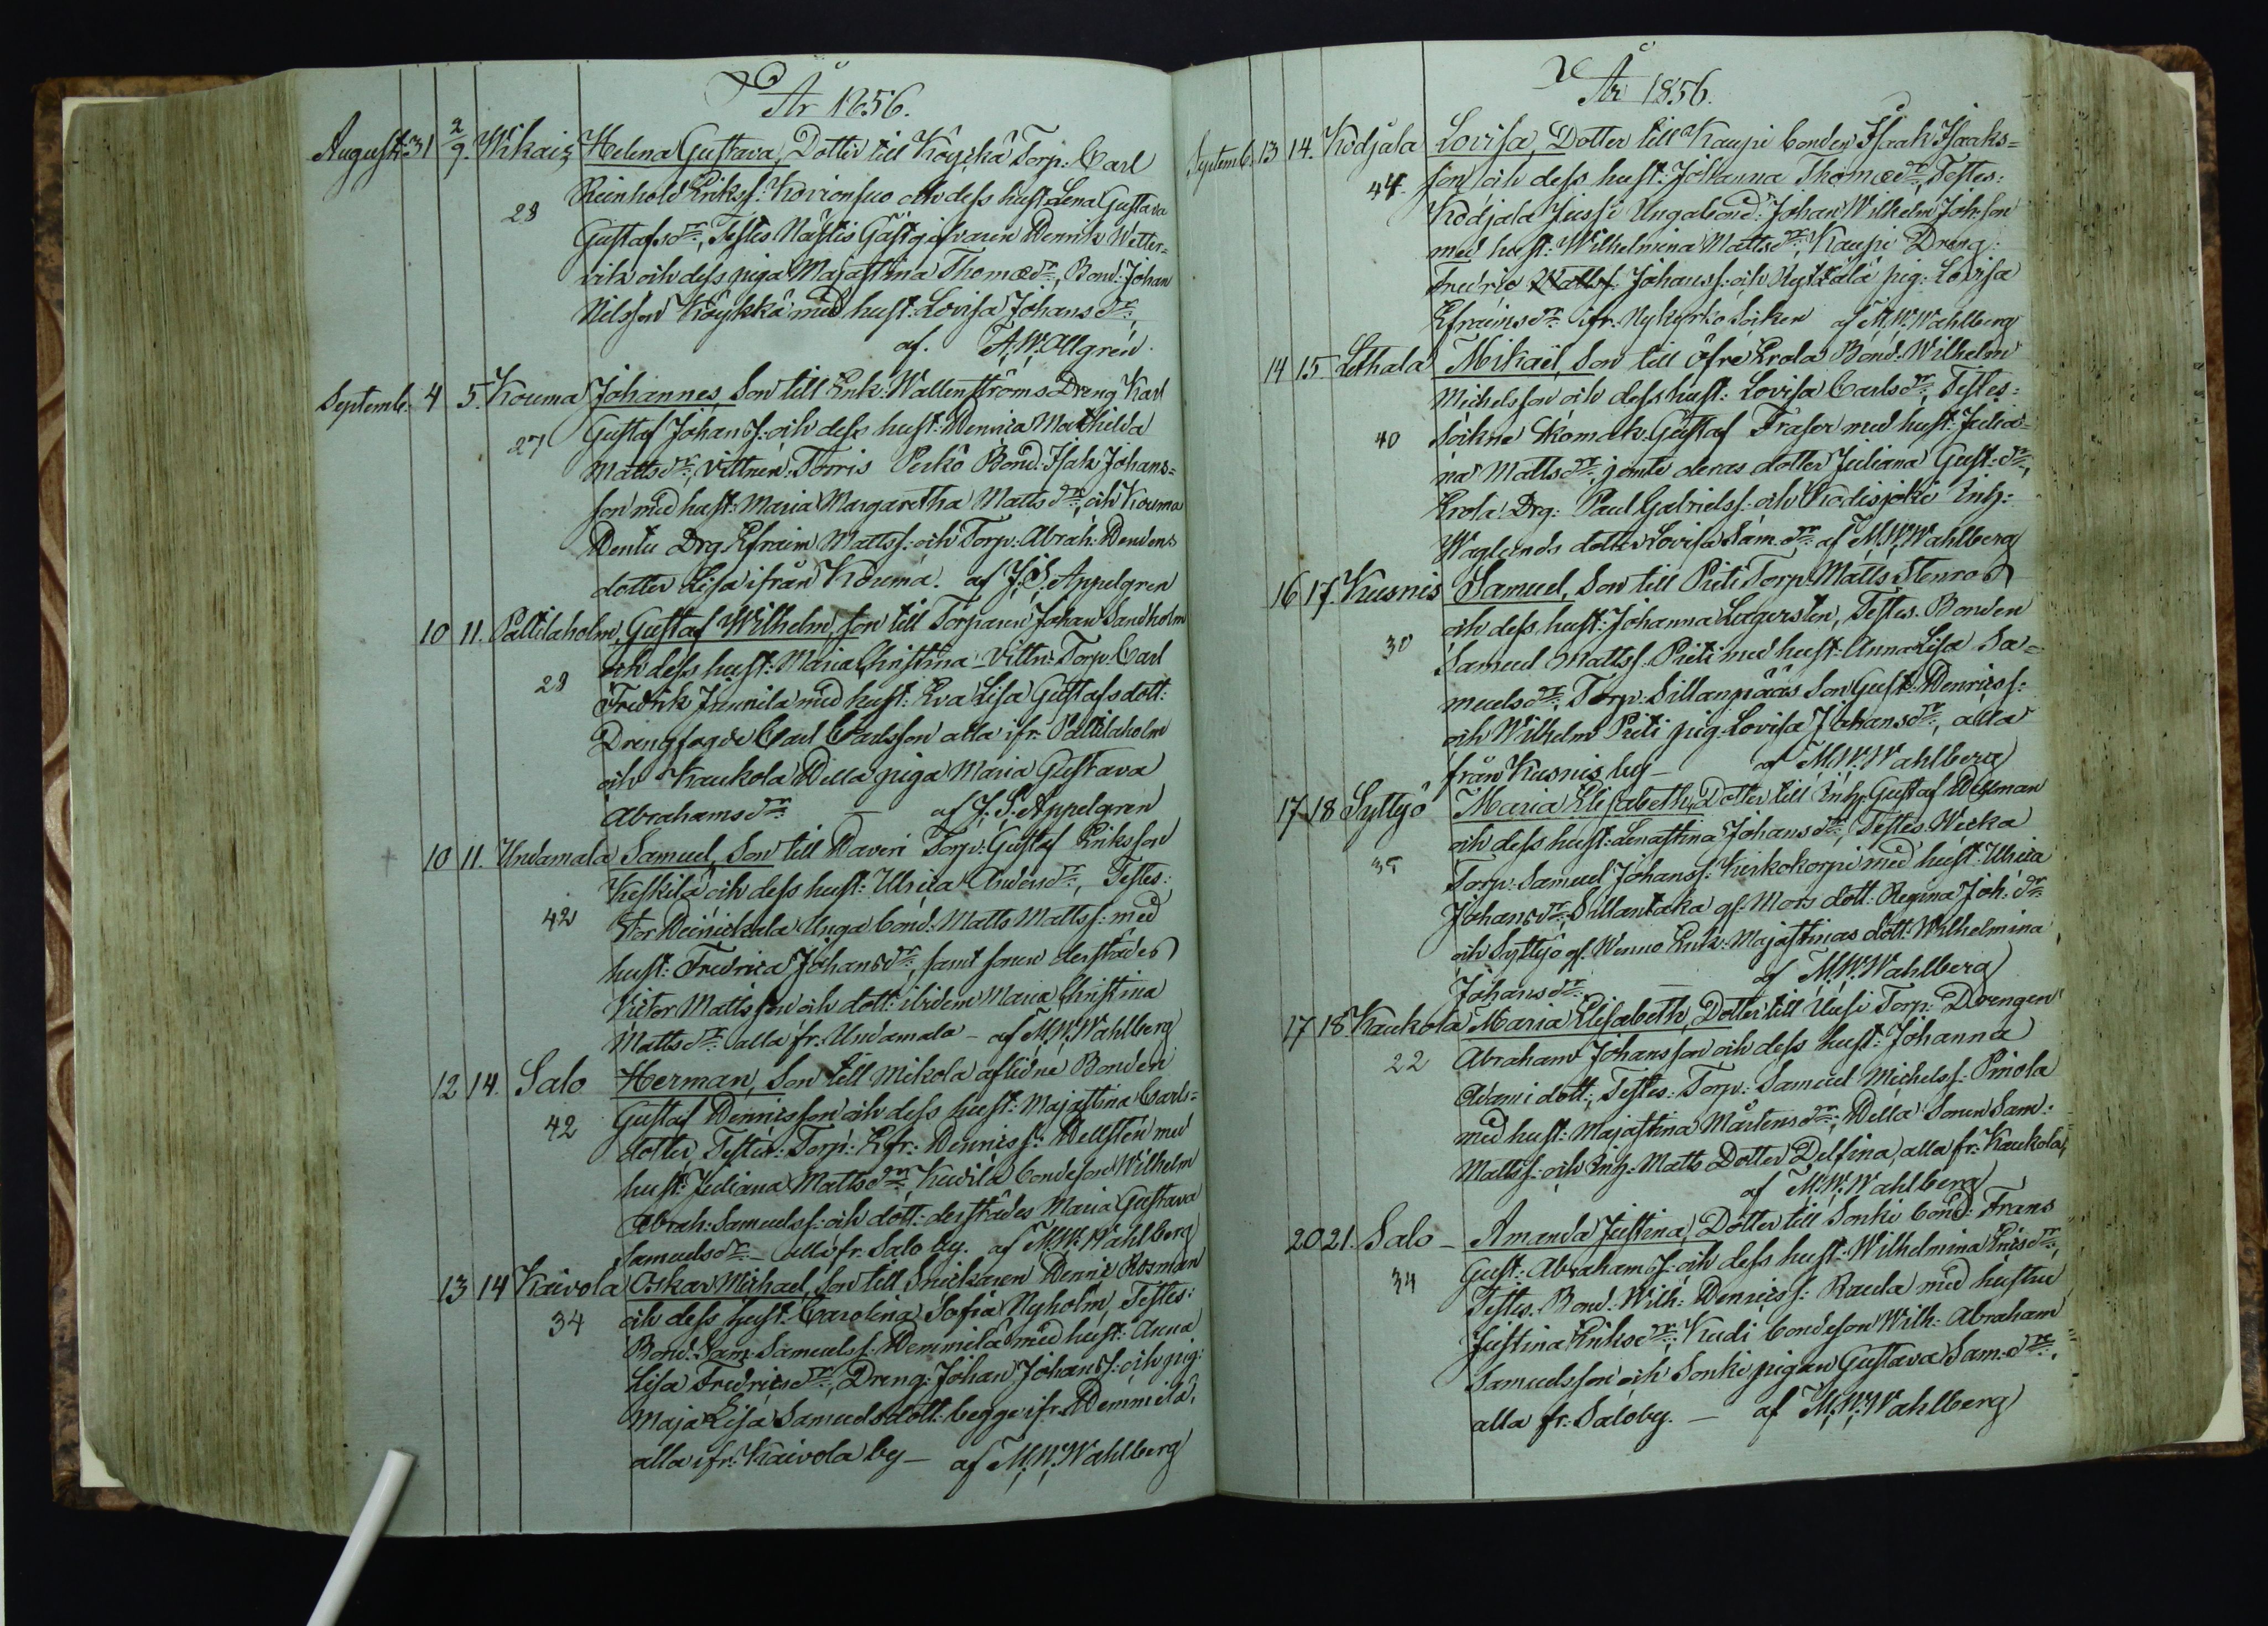 År 1856.
August. 31 2/9. Wikais Helena Gustava, Dotter till Köyckä Torp: Carl
Reinhold Erikss: Korvonsuo och dess hust. Lena Gustava
28
Gustafsdr:, Testes Nästis Gästgifvaren Henrik Wetter-
vik och dess piga Majastina Thomædr:, Bond: Johan
Nilsson Köykkä med hust: Lovisa Johansdr:,
af. A. W. Allgrén.
Septemb. 4 5. Kouma Johannes, Son till Enk: Wallenströms Dreng Karl
Gustaf Johanss: och dess hust: Henrica Mathilda
27
Mattsdr:, Vittnen: Torris Perkö Bond: Isak Johans-
son med hust: Maria Margaretha Mattsdr:, och Kouma
Hentu Drg. Efraim Mattss: och Torp: Abrah: Hendens
dotter Lisa ifrån Kouma. af J. S. Appelgren
10 11. Pältilaholm, Gustaf Wilhelm, son till Torparen Johan Sandholm
och dess hust: Maria Christina Vittn: Torp. Carl
28
Fredrik Junnila med hust: Eva Lisa Gustafsdott:
Drengfogde Carl Carlsson alla ifr. Pältilaholm
och Kaukola Hella piga Maria Gustava
Abrahamsdr: — af J. S. Appelgren
10 11. Undamala Samuel, Son till Haveri Torp: Gustaf Eriksson
Keskilä och dess hust: Ulrica Andersdr:, Testes:
42
Stor Heinickala Unga bond: Matts Mattss: med
hust: Fredrica Johansdr:, samt sonen derstädes
Victor Mattsson och dott: ibidem Maria Christina
Mattsdr: alla fr. Undamala — af M. W. Wahlberg
12 14. Salo Herman, Son till Mikola aflidne Bonden
Gustaf Henricsson och dess hust: Majastina Carls-
42
dotter, Testes: Torp: Efr: Henricss: Hellsten med
hust: Juliana Mattsdr:, Kudila bondeson Wilhelm
Abrah: Samuelss: och dott: derstädes Maria Gustava
Samuelsdr: — alla fr. Salo by. af M. W. Wahlberg
13 14 Kaivola Oskar Michael, Son till Snickaren Henric Rosman
och dess hust: Carolina Sofia Nyholm, Testes:
34
Bond: Sam: Samuelss: Hemmilä med hust: Anna
Lisa Fredricsdr:, Dreng: Johan Johanss: och pig:
Maja Lisa Samuelsdott: begge ifr. Hemmilä,
alla ifr. Kaivola by — af M. W. Wahlberg
År 1856.
Septemb. 13 14. Kodjala Lovisa, Dotter till Kaupi bonden Isaak Isaaks-
44. son och dess hust: Johanna Thomædr:, Testes:
Kodjala Jussi Ungabond: Johan Wilhelm Joh:son
med hust: Wilhelmina Mattsdr:, Kaupi Dreng:
Fredric Johanss: och pig: Lovisa
Efraimsdr: ifr. Nykyrko Socken af M. W. Wahlberg
14 15. Lethala Mikaël, Son till Öfre Erola Bond: Wilhelm
Michelsson och dess hust: Lovisa Carlsdr:, Testes:
40 Sockne Skomak: Gustaf Fraser med hust: Julia-
na Mattsdr:, jemte deras dotter Juliana Gust:dr:,
Erola Drg: Paul Gabrielss: och Kodisjoki Inh:
Waglunds dotter Lovisa Sam:dr: af M. W. Wahlberg
16 17. Kusnis Samuel, Son till Prieti Torp: Matts Stenros
och dess hust: Johanna Lagersten, Testes. Bonden
30
Samuel Mattss: Prieti med hust: Anna Lisa Sa-
muelsdr:, Torp: Sillanpääs Son Gust: Henricss:
och Wilhelm Prieti pig: Lovisa Johansdr:, alla
från Kusnis by — af M. W. Wahlberg
17 18 Syttyö Maria Elisabeth, Dotter till Inh: Gustaf Hellman
och dess hust: Lenastina Johansdr:, Testes. Wecka
35
Torp: Samuel Johanss: Kirkokorpi med hust: Ulrica
Johansdr:, Sillantaka gf: Mors dott: Regina Joh:dr:
och Syttyö gf. Wenno Enk: Majastinas dott: Wilhelmina
Johansdr: — af M. W. Wahlberg
17 18. Kaukola Maria Elisabeth, Dotter till Uusi Torp: Drengen
22 Abraham Johansson och dess hust: Johanna
Adami dott:, Testes: Torp: Samuel Michelss: Pinola
med hust: Majastina Mårtensdr:, Hella Sonen Sam:
Mattss: och Inh: Matts Dotter Delfina, alla fr. Kaukola,
af M. W. Wahlberg
20 21. Salo — Amanda Justina, Dotter till Sonki bond: Frans
Gust: Abrahamss: och dess hust: Wilhelmina Ericsdr:,
34
Testes. Bond: Wilh: Henricss: Raula med hustru
Justina Eriksdr:, Kudi bondeson Wilh: Abraham
Samuelsson och Sonki pigan Gustava Sam:dr:,
alla fr. Salo by. — af M. W. Wahlberg